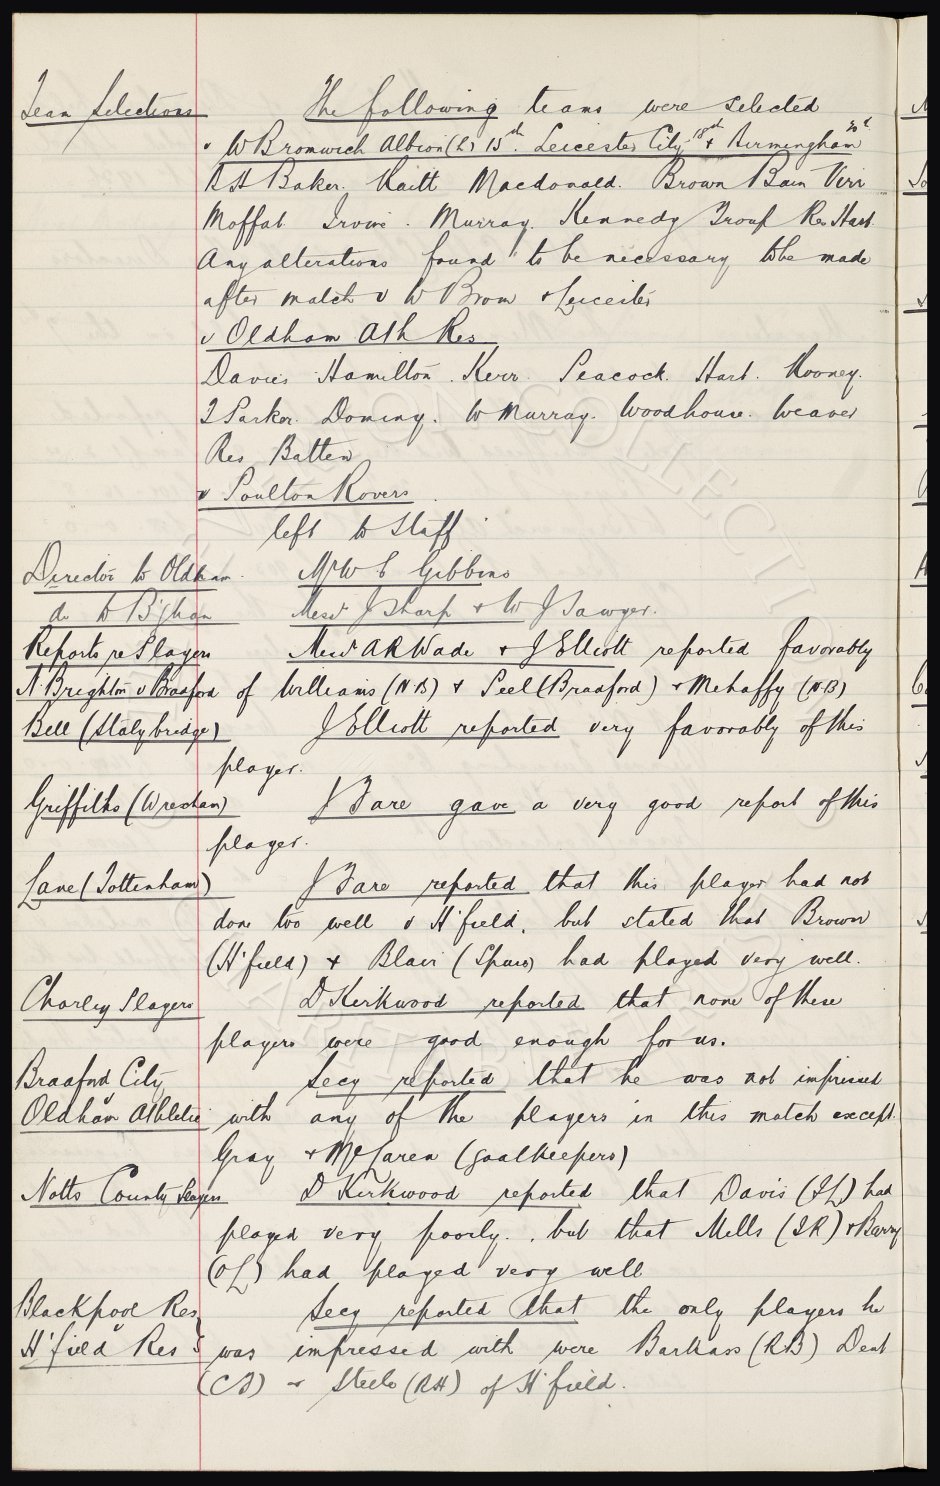 Team Selections The following teams were selected
v W Bromwich Albion (L) 15th. Leicester City 18th + Birmingham 20th
R H Baker. Raitt Macdonald. Brown Bain Virr
Moffat Irvine. Murray. Kennedy Troup Res Hart.
Any alterations found to be necessary to be made
after match v W Brom + Leicester
v Oldham Ath Res
Davies Hamilton. Kerr. Peacock. Hart. Rooney.
J Parker. Dominy. W Murray. Woodhouse. Weaver
Res Batten
v Poulton Rovers
left to Staff
Director to Oldham. Mr W C Gibbins
do to B'gham Messrs J Sharp + W J Sawyer.
Reports re Players Messrs A R Wade + J Elliott reported favorably
N. Brighton v Bradford of Williams (N B) + Peel (Bradford) + Mehaffy (N B)
Bell (Stalybridge) J Elliott reported very favorably of this
player.
Griffiths (Wrexham) J Fare gave a very good report of this
player.
Lane (Tottenham) J Fare reported that this player had not
done too well v H'field, but stated that Brown
(H'field) + Blair (Spurs) had played very well.
Chorley Players D Kirkwood reported that none of these
players were good enough for us.
Bradford City Secy reported that he was not impressed
v
Oldham Athletic with any of the players in this match except
Gray + McLaren (goalkeepers)
Notts County Players D Kirkwood reported that Davis (I L) had
played very poorly., but that Mills (I R) + Barry
(O L) had played very well
Blackpool Res Secy reported that the only players he
v
H'field Res was impressed with were Barkass (R B) Dent
(C F) + Steele (R H) of H'field.